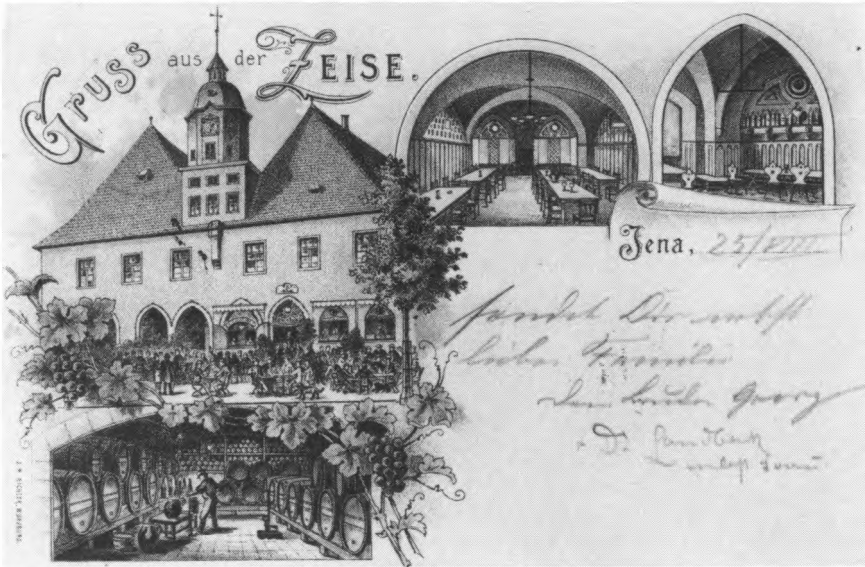 Gruss aus der ZEISE.
Jena, 25/VIII
sendet Dir nebst
lieber Familie
Dein Bruder Georg
Dr.
nebst Frau